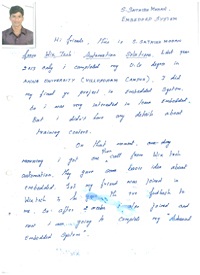 S. SATHISH MOHAN,
EMBEDDED SYSTEM
Hi friends, This is S. SATHISH MOHAN
from Win Tech Automation Solutions. Last year
2013 only I completed my U.G degree in
ANNA UNIVERSITY (VILLUPURAM CAMPUS). I did
my final yr project in Embedded System.
So I was very interested in learn Embedded.
But I didn't have any details about
training centers.
On that moment, one day
morning I got one call from Win tech
automation. They gave some basic idea about
embedded. Let my friend was joined in
Win tech & he the feedback to
me. So after 2 weeks I also joined and
now I am going to complete my diploma
Embedded System".